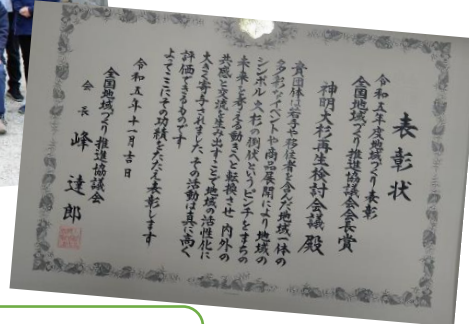 表彰状
令和五年度地域づくり表彰
全国地域づくり推進協議会会長賞
神明大杉再生検討会議 殿
貴団体は若手や移住者を含んだ地域一体の
多彩なイベントや商品展開により地域の
シンボル大杉の倒伏というピンチをまちの
未来を考える動きへと転換させ 内外の
共感と交流を生み出すことで地域の活性化に
大きく寄与されました その活動は真に高く
評価できるものです
よってここにその功績をたたえ表彰します
令和五年十一月吉日
全国地域づくり推進協議会
会長 峰 達郎